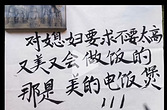 对媳妇要求不要太高
又美又会做饭的
那是美的电饭煲!!!